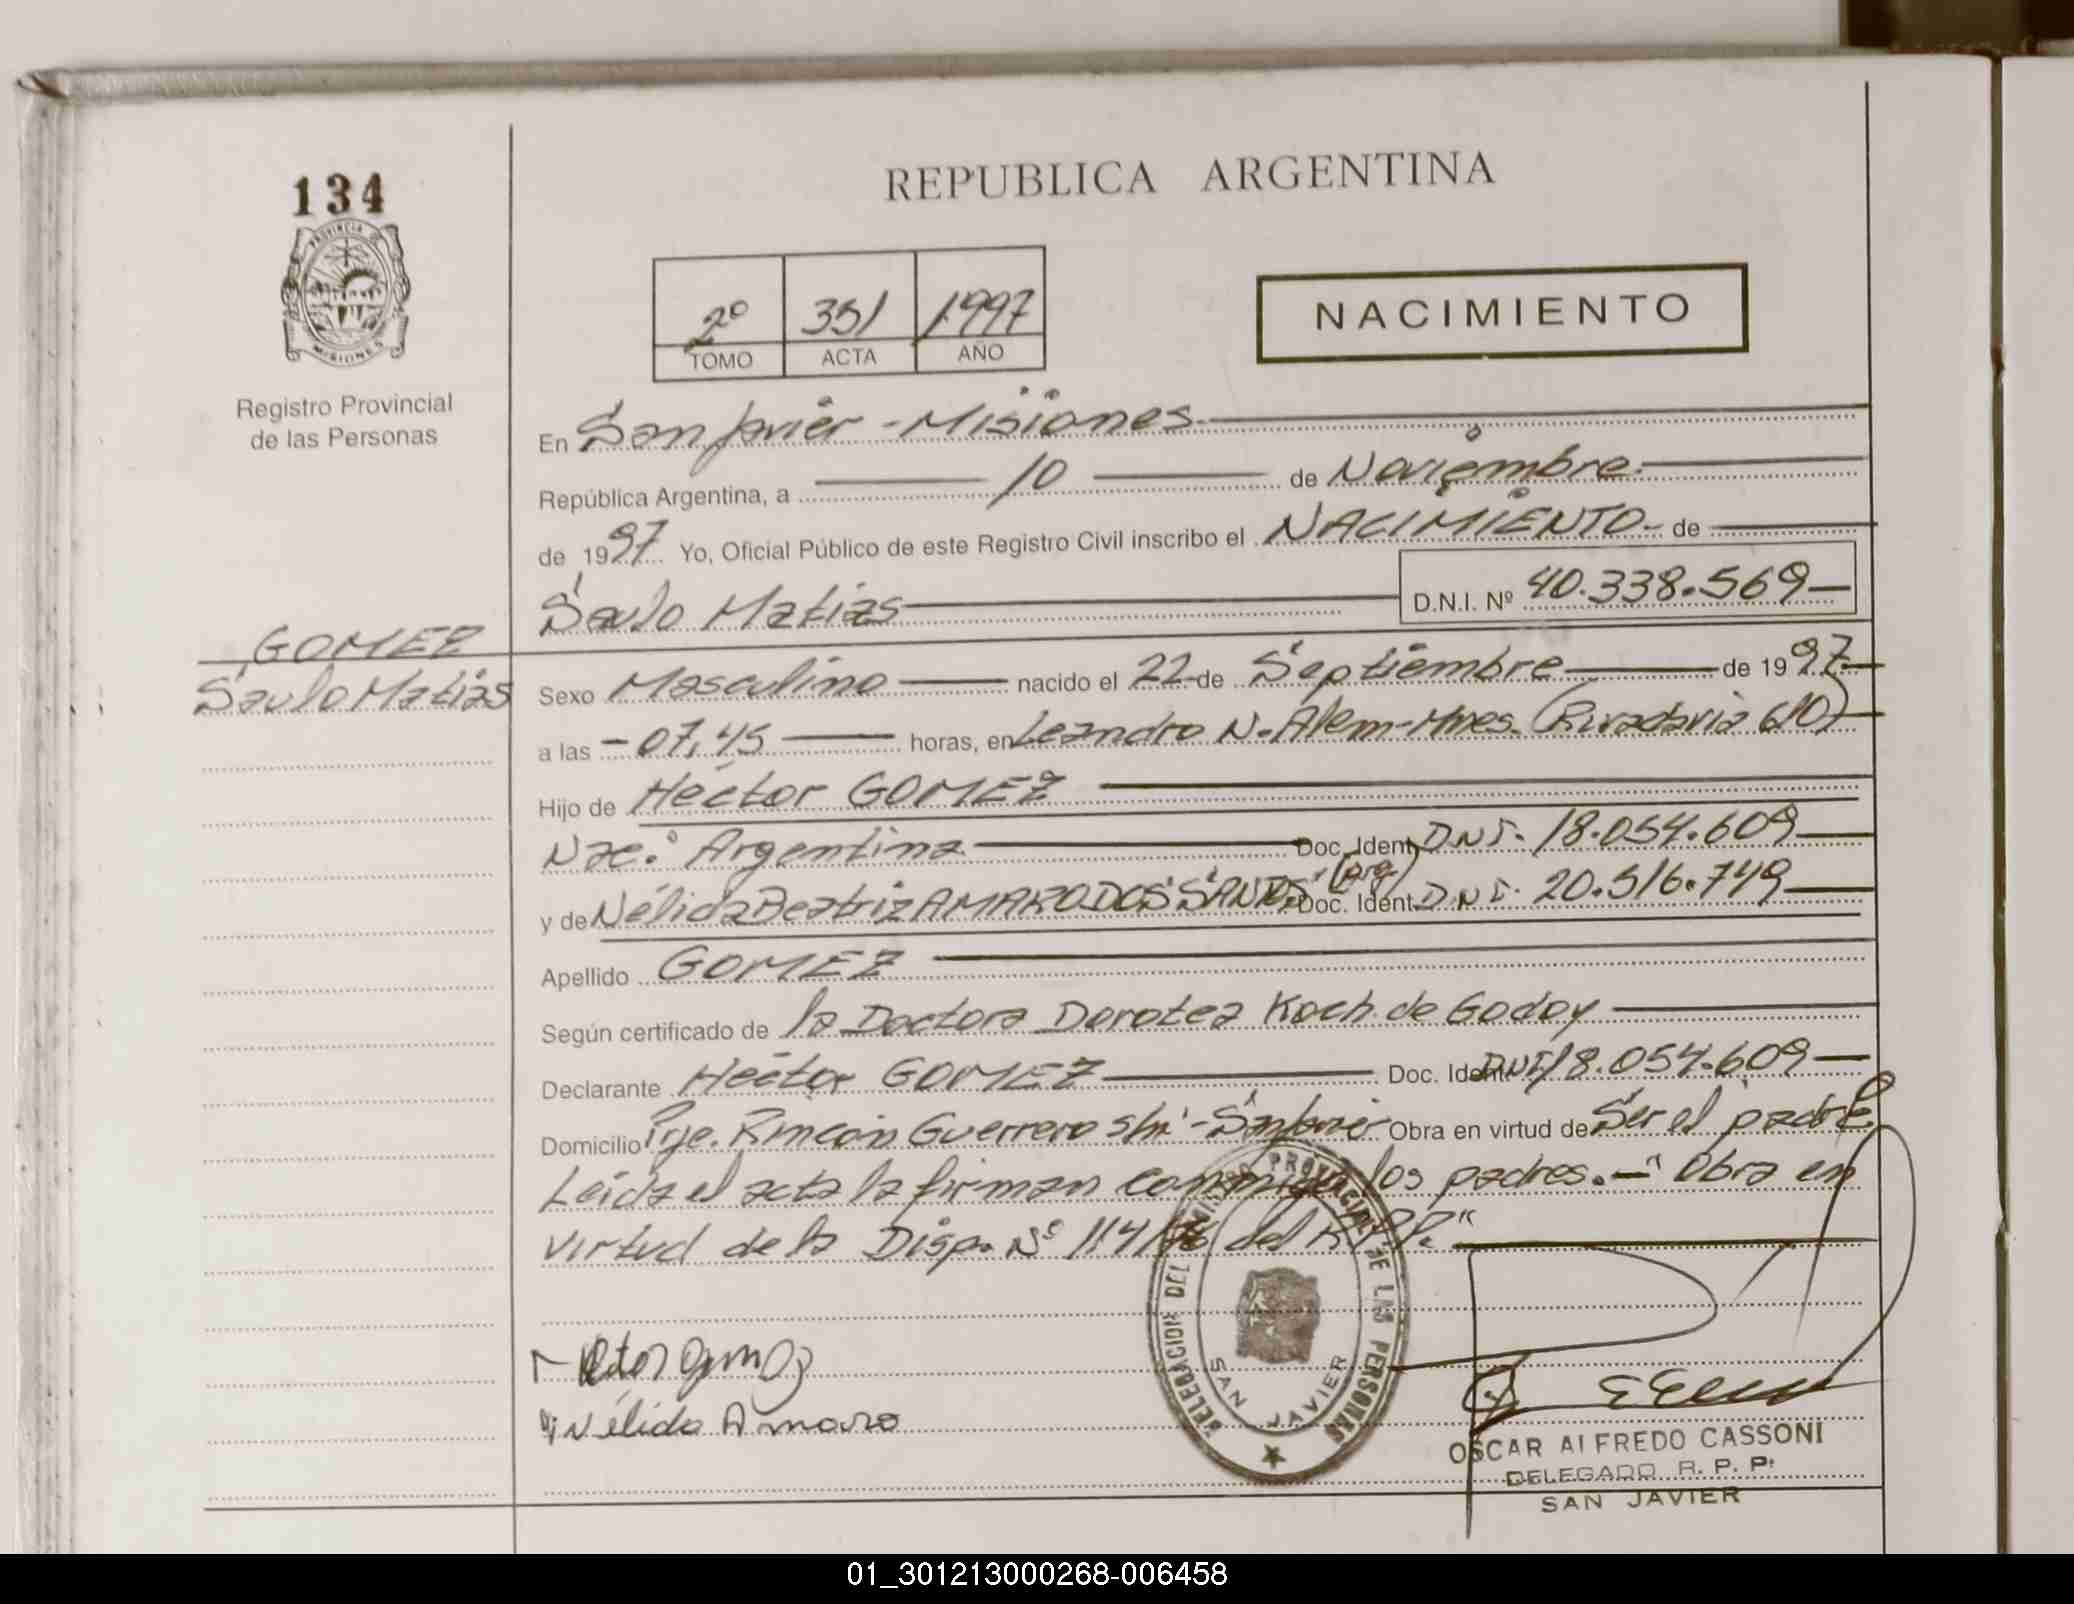 134
PROVINCIA D
MISIONES
Registro Provincial
de las Personas
REPUBLICA ARGENTINA
2º 351 1997
TOMO ACTA AÑO
NACIMIENTO
En San Javier - Misiones
República Argentina, a 10 de Noviembre
de 1997. Yo, Oficial Público de este Registro Civil inscribo el NACIMIENTO de
Saulo Matias D.N.I. Nº 40.338.569
GOMEZ
Saulo Matias
Sexo Masculino nacido el 22 de Septiembre de 1997
a las 07,45 horas, en Leandro N. Alem - Mnes. (Rivadavia 610)
Hijo de Héctor GOMEZ
Nac.º Argentina Doc. Ident. D.N.I. 18.054.609
y de Nélida Beatriz AMARO DOS SANTOS (arg) Doc. Ident. D.N.I. 20.516.749
Apellido GOMEZ
Según certificado de la Doctora Dorotea Koch de Godoy
Declarante Héctor GOMEZ Doc. Ident. DNI 18.054.609
Domicilio Pje. Rincón Guerrero s/n - San Javier Obra en virtud de Ser el padre
Leida el acta la firman conmigo los padres. - "Obra en
virtud de la Disp. Nº 114/ del R.P.P."
Nélida Amaro
DELEGACION DEL REGISTRO PROVINCIAL DE LAS PERSONAS
SAN JAVIER
OSCAR ALFREDO CASSONI
DELEGADO R. P. P.
SAN JAVIER
01_301213000268-006458